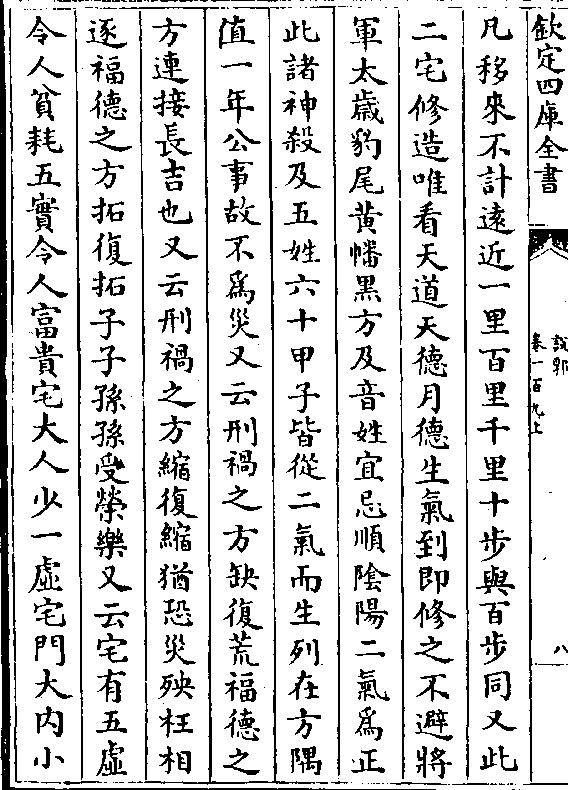 欽定四庫全書
說郛
卷一百九上
八
凡移來不計遠近一里百里千里十步與百步同又此
二宅修造唯看天道天德月德生氣到即修之不避將
軍太歲豹尾黄幡黑方及音姓宜忌順陰陽二氣爲正
此諸神殺及五姓六十甲子皆從二氣而生列在方隅
值一年公事故不爲災又云刑禍之方缺復荒福德之
方連接長吉也又云刑禍之方縮復縮猶恐災殃枉相
逐福德之方拓復拓子子孫孫受榮樂又云宅有五虚
令人貧耗五實令人富貴宅大人少一虚宅門大内小